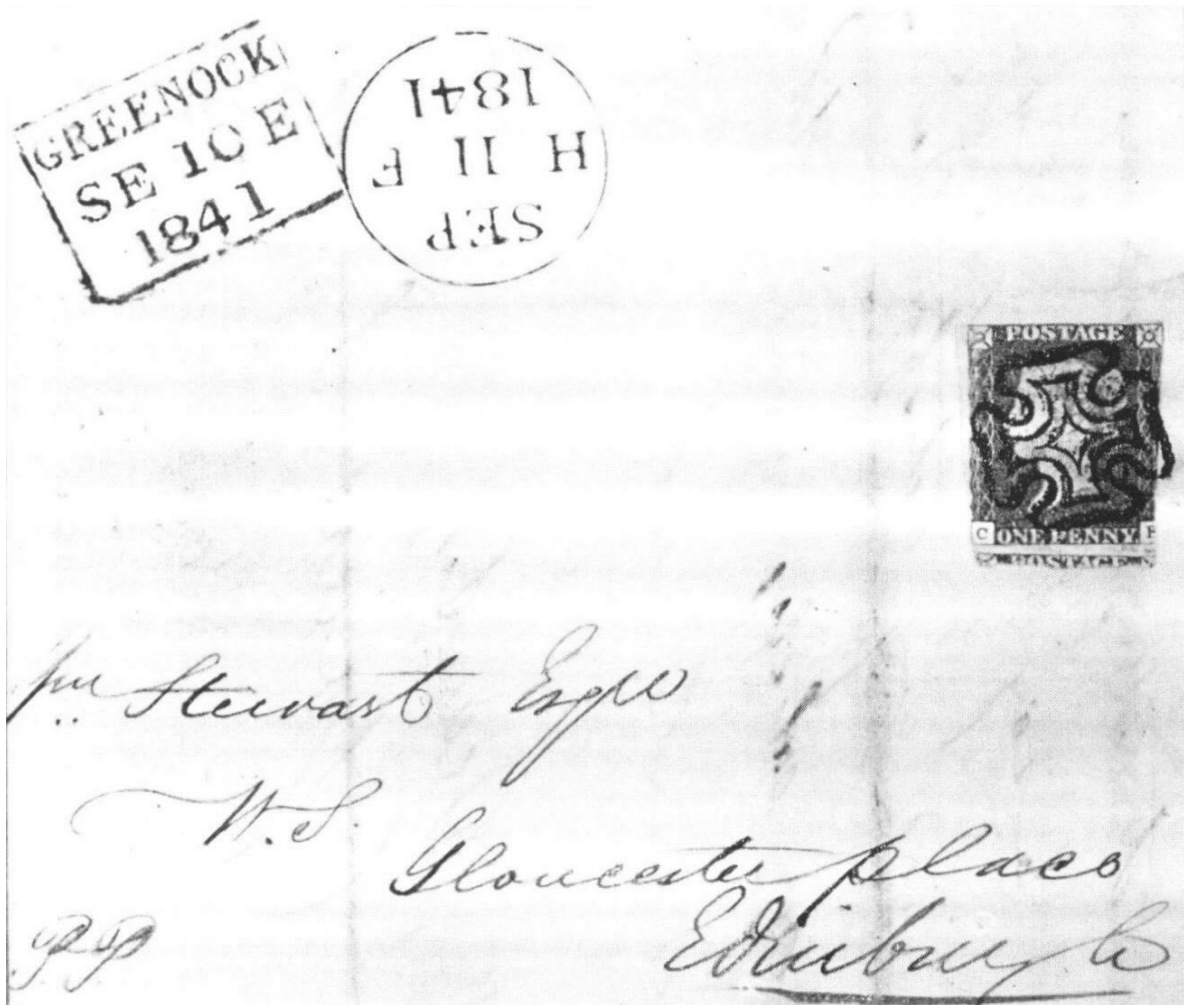 GREENOCK
SE 10 E
1841
SEP
H 11 F
1841
POSTAGE
C ONE PENNY
Stewart Esqre
W.S.
Gloucester place
Edinburgh